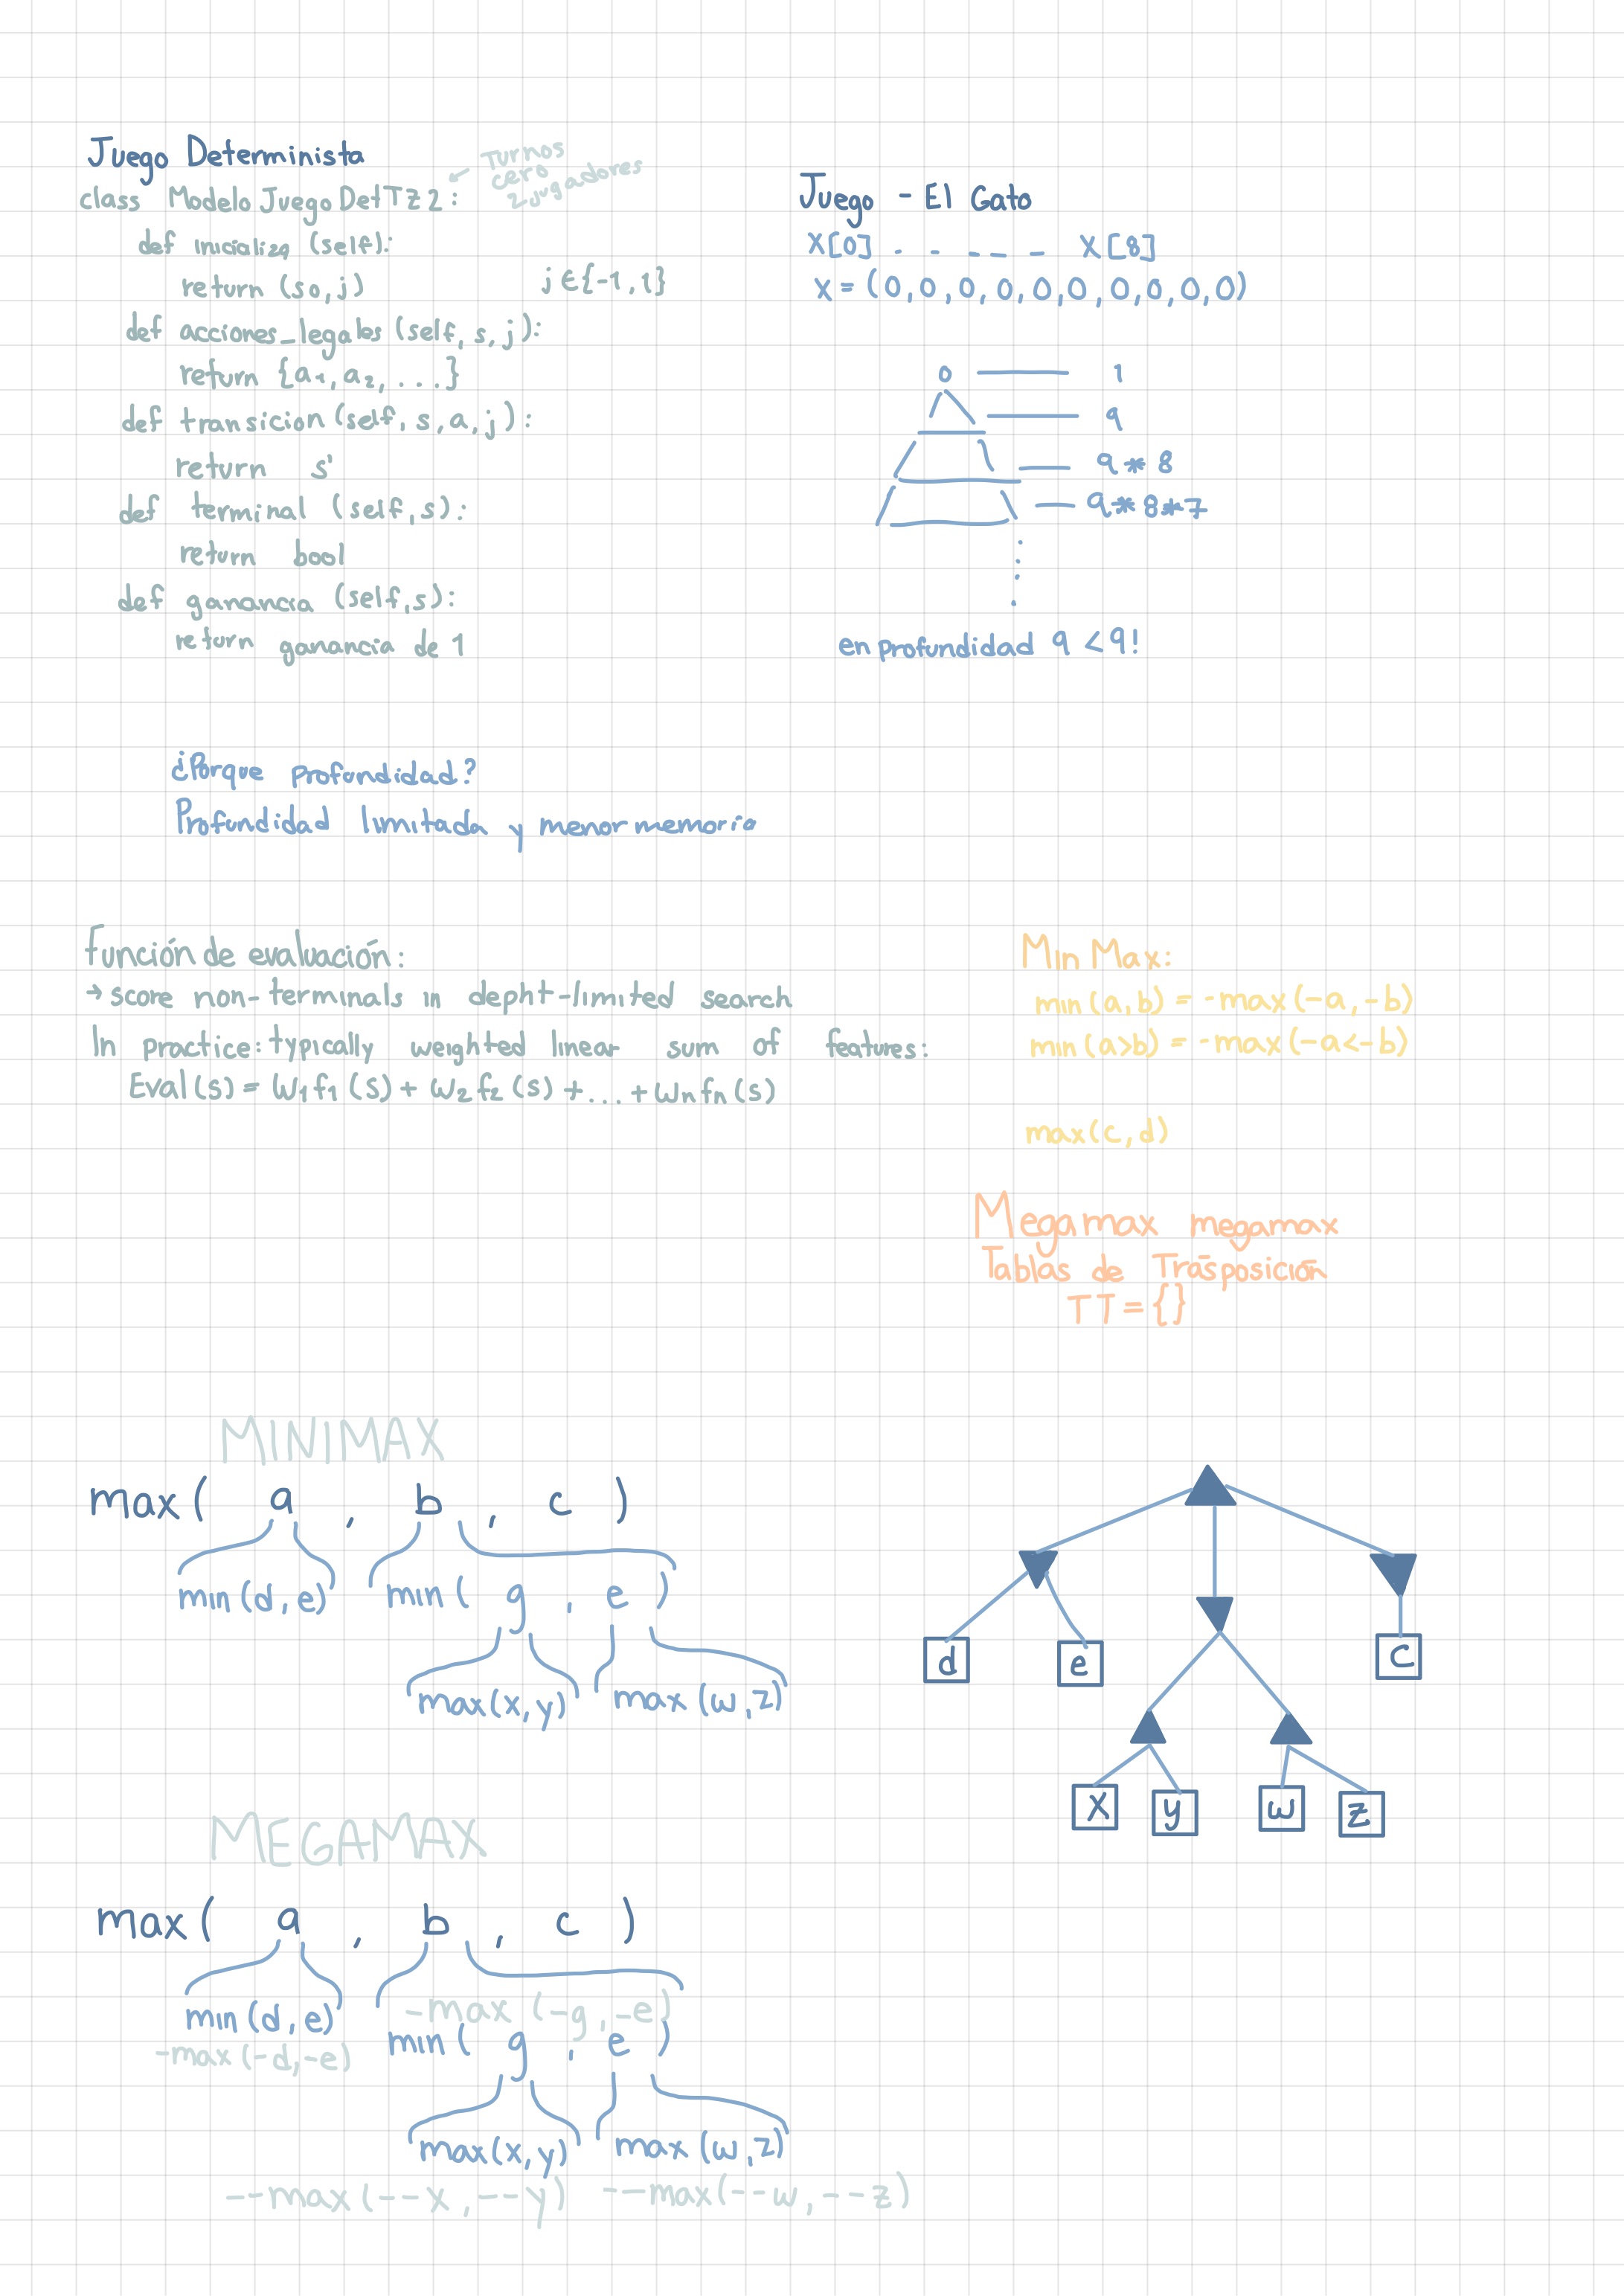 Juego Determinista
class Modelo Juego DetTz2:
← Turnos
cero
2 jugadores
def inicializa (self):
return (s0, j)
j ∈ {-1, 1}
def acciones_legales (self, s, j):
return {a1, a2, ...}
def transicion (self, s, a, j):
return s'
def terminal (self, s):
return bool
def ganancia (self, s):
return ganancia de 1
Juego - El Gato
X[0] - - - - - X[8]
X = (0,0,0,0,0,0,0,0,0,0)
0 — 1
— 9
— 9*8
— 9*8*7
en profundidad 9 < 9!
¿Porque profundidad?
Profundidad limitada y menor memoria
Función de evaluación:
→ score non-terminals in depht-limited search
In practice: typically weighted linear sum of features:
Eval(s) = w1f1(s) + w2f2(s) + ... + wnfn(s)
Min Max:
min(a,b) = -max(-a,-b)
min(a>b) = -max(-a<-b)
max(c,d)
Megamax megamax
Tablas de Trasposición
TT = {}
MINIMAX
max( a , b , c )
min(d,e) min( g , e )
max(x,y) max(w,z)
d e c
x y w z
MEGAMAX
max( a , b , c )
-max(-g,-e)
min(d,e) min( g , e )
-max(-d,-e)
max(x,y) max(w,z)
--max(--x,--y) --max(--w,--z)